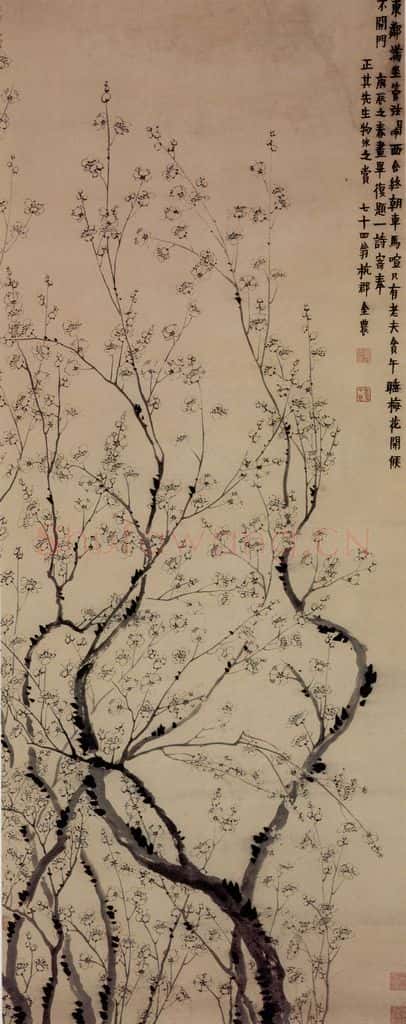 東鄰滿坐管弦鬧西舍終朝車馬喧只有老夫貪午睡梅花開候
不開門 庚辰之春畫畢復題一詩寄奉
正其先生物外之賞 七十四翁杭郡金農